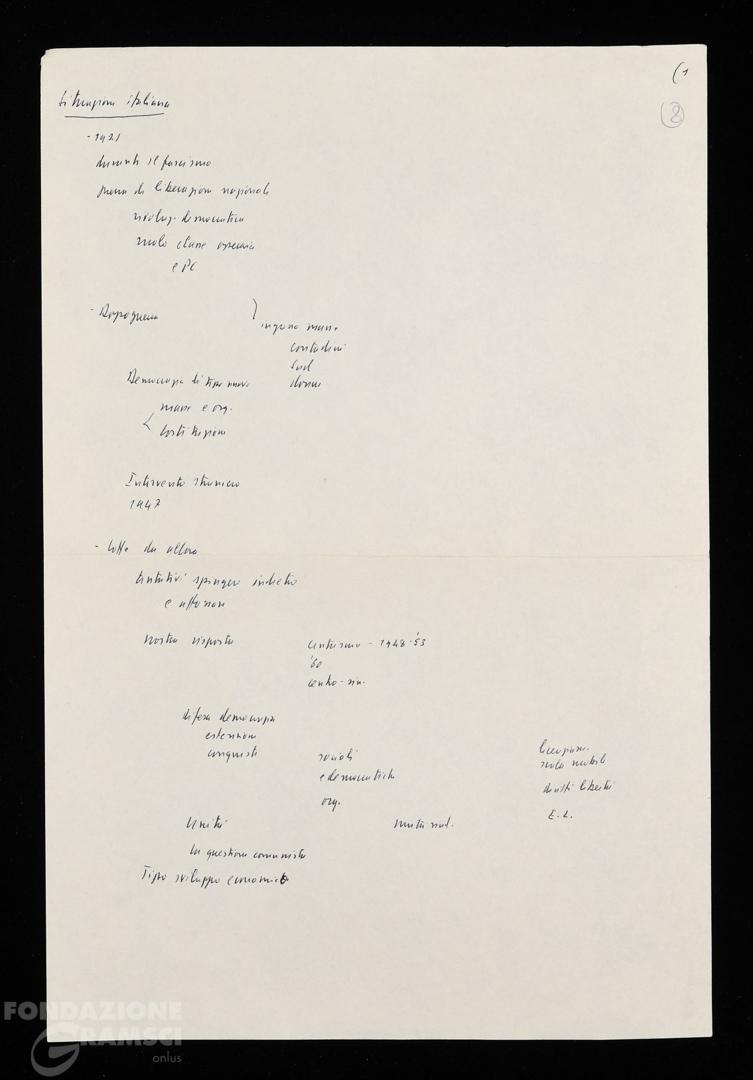 (1
8
Situazione italiana
- 1921
durante il fascismo
guerra di liberazione nazionale
rivoluz. democratica
ruolo classe operaia
e PC
- Dopoguerra
ingresso masse
contadini
Sud
Democrazia di tipo nuovo donne
masse e org.
Costituzione
Intervento straniero
1947
- Lotta da allora
tentativi spingere indietro
e affossare
nostra risposta centrismo - 1948-'53
'60
centro-sin.
difesa democrazia
estensione
conquiste sociali
e democratiche
diritti libertà
org.
E. L.
Unità unità sind.
la questione comunista
Tipo sviluppo economico
FONDAZIONE
GRAMSCI
onlus